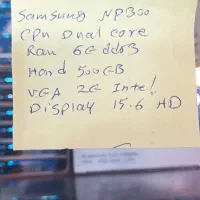 Samsung NP300
CPU Dual core
Ram 6G ddr3
Hard 500GB
VGA 2G Intel
Display 15.6 HD